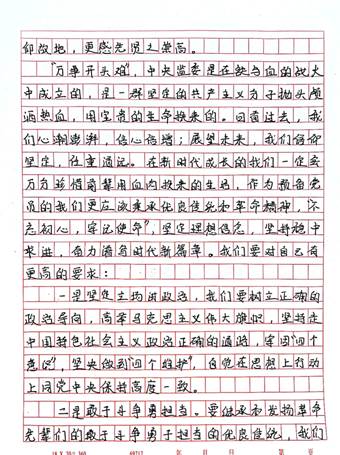 仰故地，更感先贤之崇高。
“万事开头难”，中央监委是在铁与血的战火
中成立的，是一群坚定的共产主义分子抛头颅
洒热血，用宝贵的生命换来的。回首过去，我
们心潮澎湃，信心倍增；展望未来，我们信仰
坚定，任重道远。在新时代成长的我们一定要
万分珍惜前辈用血肉换来的生活，作为预备党
员的我们更应该秉承优良传统和革命精神，不
忘初心，牢记使命”，坚定理想信念，坚持稳中
求进，奋力谱写时代新篇章。我们要对自己有
更高的要求：
一是坚定立场讲政治，我们要树立正确的
政治导向，高举马克思主义伟大旗帜，坚持走
中国特色社会主义政治正确的道路，牢固“四个
意识”，坚决做到“四个维护”，自觉在思想上行动
上同党中央保持高度一致。
二是敢于斗争勇担当。要继承和发扬革命
先辈们的敢于斗争勇于担当的优良传统，我们